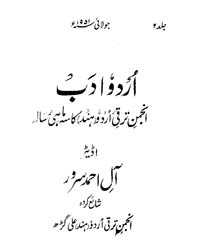 جلد ۲
جولائی ۱۹۵۱ء
اُردُو ادَب
انجمنِ ترقیِ اُردو (ہند) کا سہ ماہی رسالہ
اڈیٹر
آلِ احمد سرور
شائع کردہ
انجمنِ ترقی اُردو (ہند) علی گڑھ